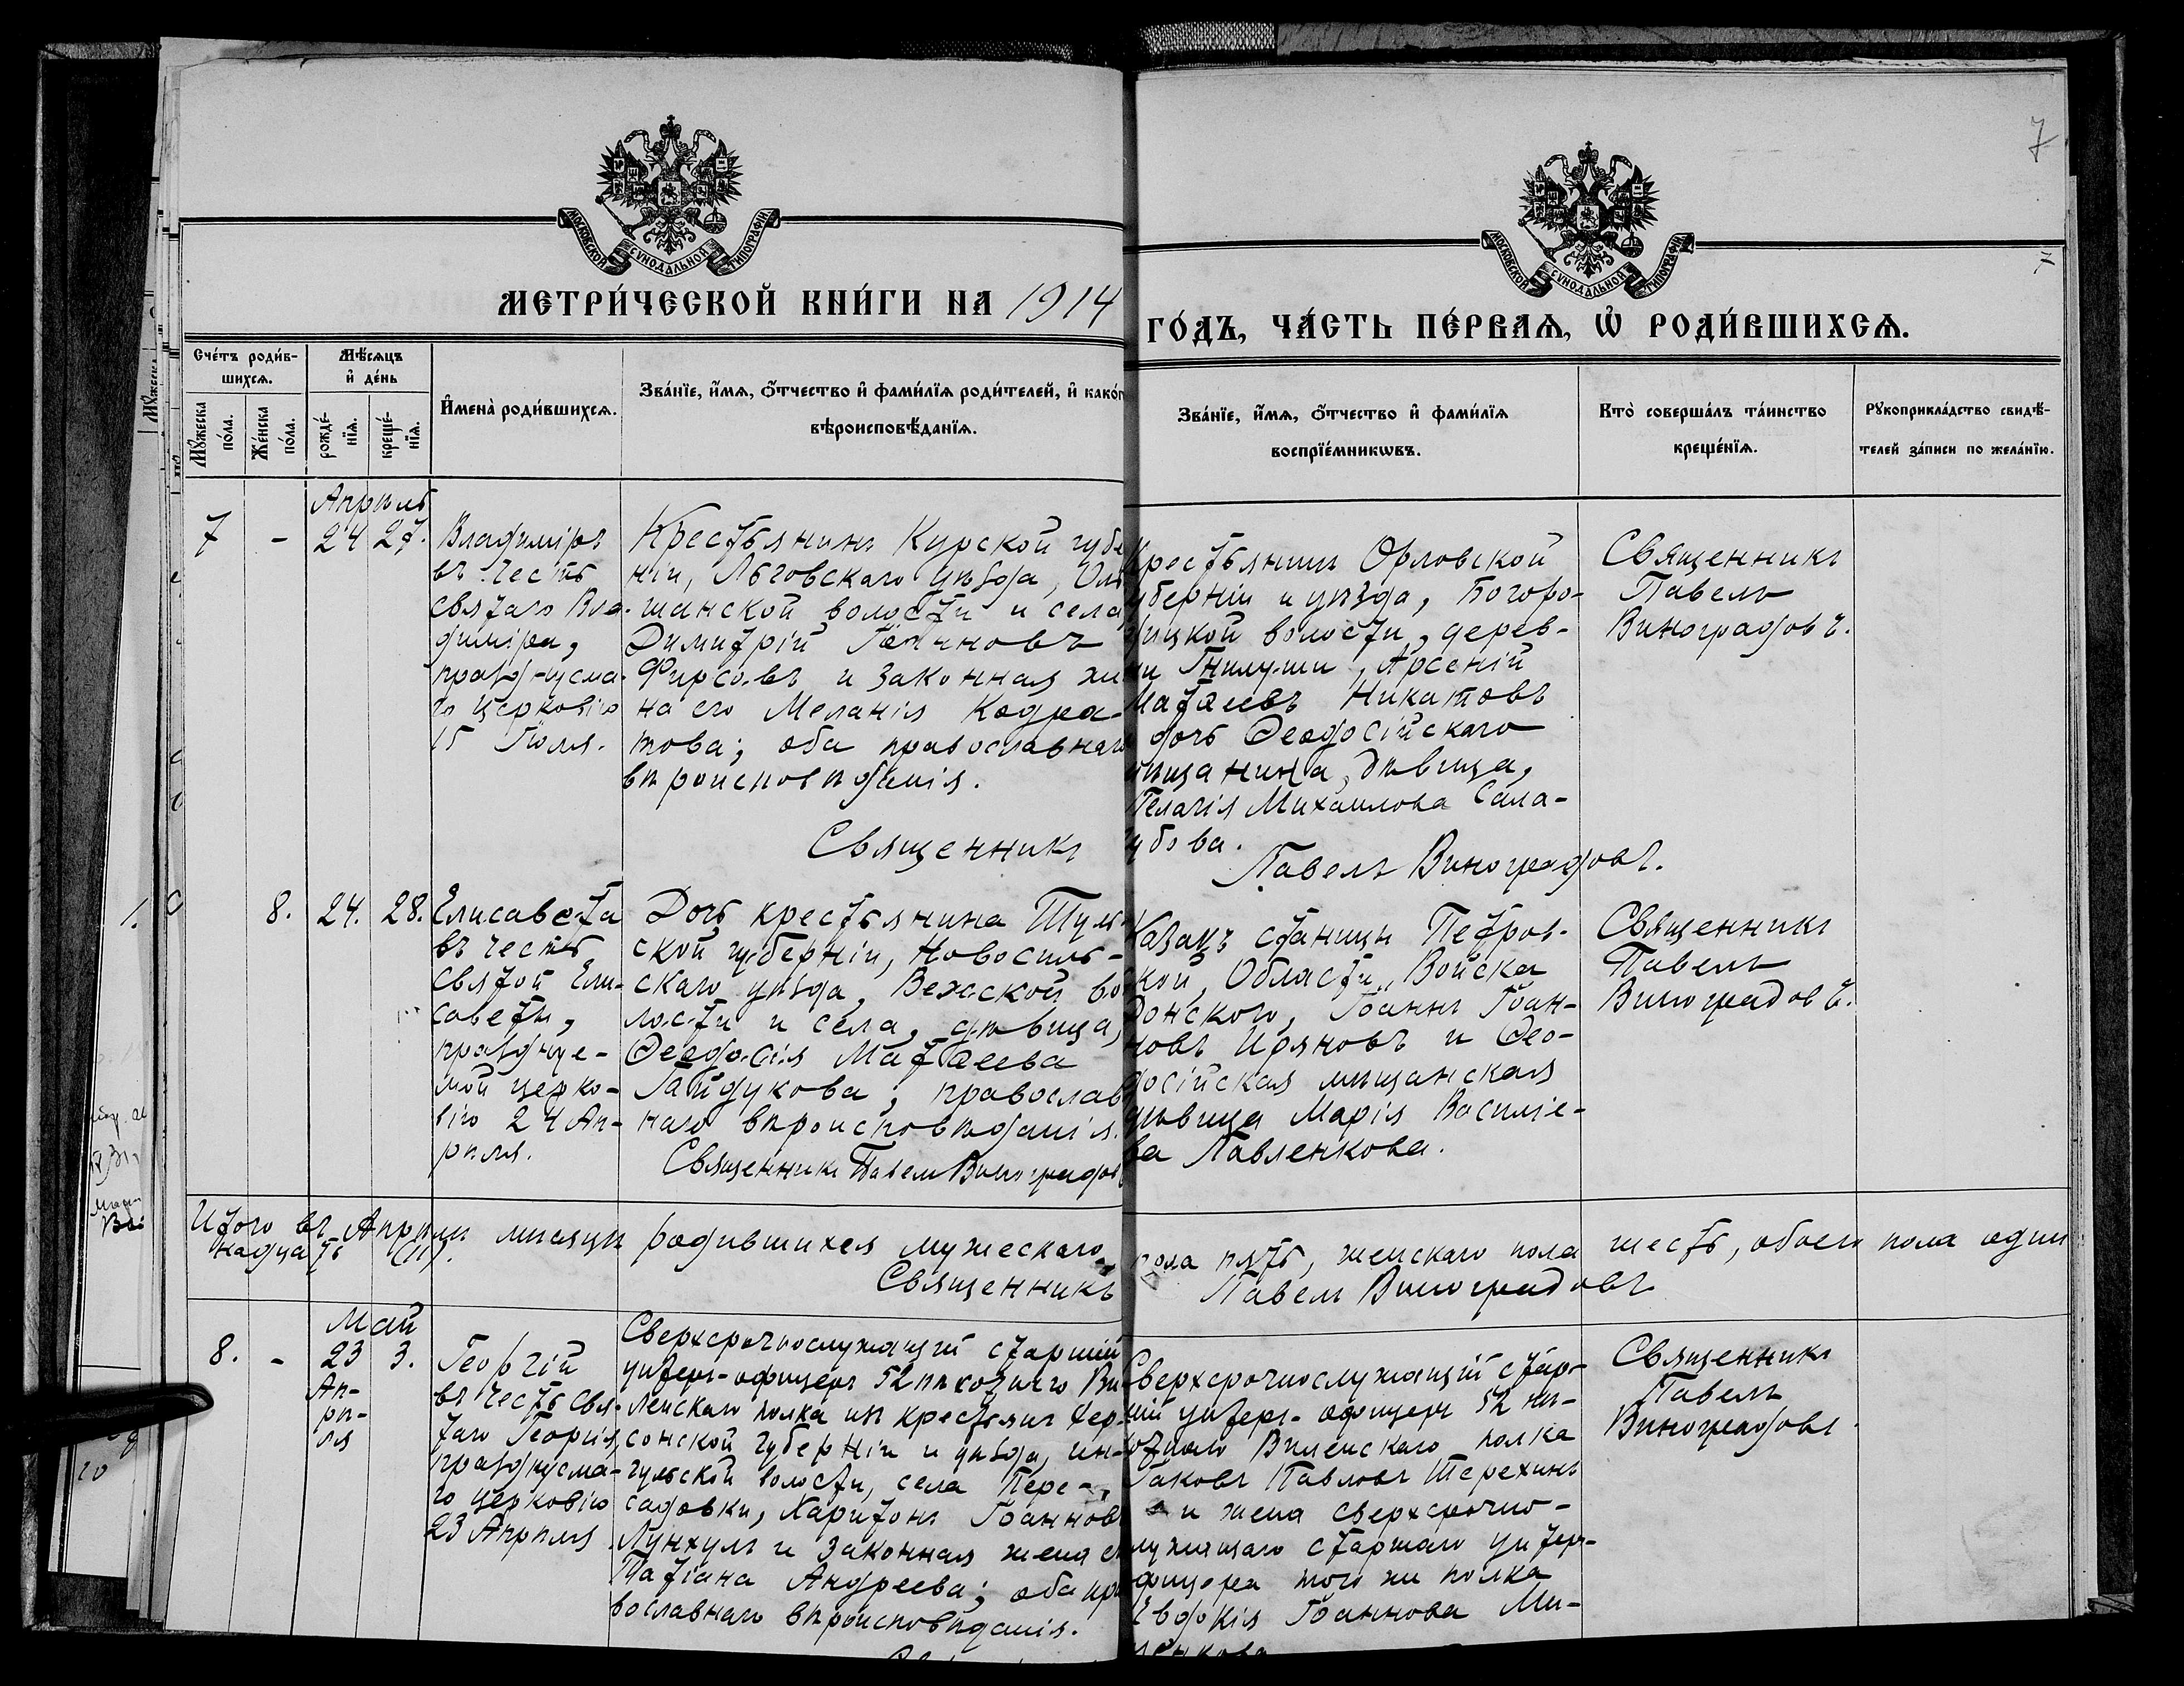 7
МОСКОВСКОЙ СѴНОДАЛЬНОЙ ТИПОГРАФІИ
МОСКОВСКОЙ СѴНОДАЛЬНОЙ ТИПОГРАФІИ
7
МЕТРИ́ЧЕСКОЙ КНИ́ГИ НА 1914
ГО́ДЪ, ЧА́СТЬ ПЕ́РВАѦ, Ѽ РОДИ́ВШИХСѦ.
Сче́тъ роди́в-
шихсѧ.
Мꙋжеска
по́ла.
Же́нска
по́ла.
Мѣ́сѧцъ
и҆ де́нь
рожде́-
нїѧ.
креще́-
нїѧ.
И҆мена̀ роди́вшихсѧ.
Зва́нїе, и҆́мѧ, ѻ҆́тчество и҆ фами́лїѧ роди́телей, и҆ како́г
вѣроисповѣ́данїѧ.
Зва́нїе, и҆́мѧ, ѻ҆́тчество и҆ фами́лїѧ
воспрїе́мникѡвъ.
Кто̀ соверша́лъ та́инство
креще́нїѧ.
Рꙋкоприкла́дство свидѣ́-
телей за́писи по жела́нїю.
Апрѣль
7 - 24 27.
Владиміръ
въ честь
святаго Вла-
диміра,
празднуема-
го церковію
15 Іюля.
Крестьянинъ Курской губе
ніи, Льговскаго уѣзда,
шанской волости и села,
Димитрій
Фирсовъ и законная же
на его Меланія Кодра-
това; оба православнаго
вѣроисповѣданія.
Священникъ
Крестьянинъ Орловской
уберніи и уѣзда, Богоро-
дицкой волости, дерев-
ни Гнилуши, Арсеній
Матѳеевъ Никатовъ
дочь Ѳеодосійскаго
мѣщанина, дѣвица,
Пелагія Михаилова Сала-
убова.
Павелъ Виноградовъ.
Священникъ
Павелъ
Виноградовъ.
8. 24. 28.
Елисавета
въ честь
Святой Ели-
саветы,
празднуе-
мой церко-
вію 24 Ап-
рѣля.
Дочь крестьянина Туль-
ской губерніи, Новосиль-
скаго уѣзда, Вежской во
лости и села, дѣвица,
Ѳеодосія Матѳеева
Гайдукова; православ
наго вѣроисповѣданія.
Священникъ Павелъ Виноградов
Казакъ станицы Петров-
кой, Области Войска
Донского, Іоаннъ Іоан-
новъ Иряновъ и Ѳео-
досійская мѣщанская
дѣвица Марія Василіе-
ва Павленкова.
Священникъ
Павелъ
Виноградовъ.
Итого въ Апрѣлѣ мѣсяцѣ родившихся мужескаго пола пять, женскаго пола шесть, обоего пола один
надцать (11).
Священникъ Павелъ Виноградовъ
Май
8. - 23 3.
Ап-
рѣ-
ля
Георгій
въ честь Свя-
таго Георгія,
празднуема-
го церковію
23 Апрѣля.
Сверхсрочнослужащій старшій
унтеръ-офицеръ 52 пѣхотнаго Ви
ленскаго полка изъ крестьянъ Хер-
сонской губерніи и уѣзда, ин-
гульской волости, села Пере-
садовки, Харитонъ Іоанновъ
Лунхулъ и законная жена е
Татіана Андреева; оба пра
вославнаго вѣроисповѣданія.
Сверхсрочнослужащій стар-
шій унтеръ-офицеръ 52 пѣ-
хотнаго Виленскаго полка
Іаковъ Павловъ Терехинъ
и жена сверхсрочно-
лужащаго старшаго унтеръ-
фицера того же полка
Евдокія Іоаннова Ми-
Священникъ
Павелъ
Виноградовъ.